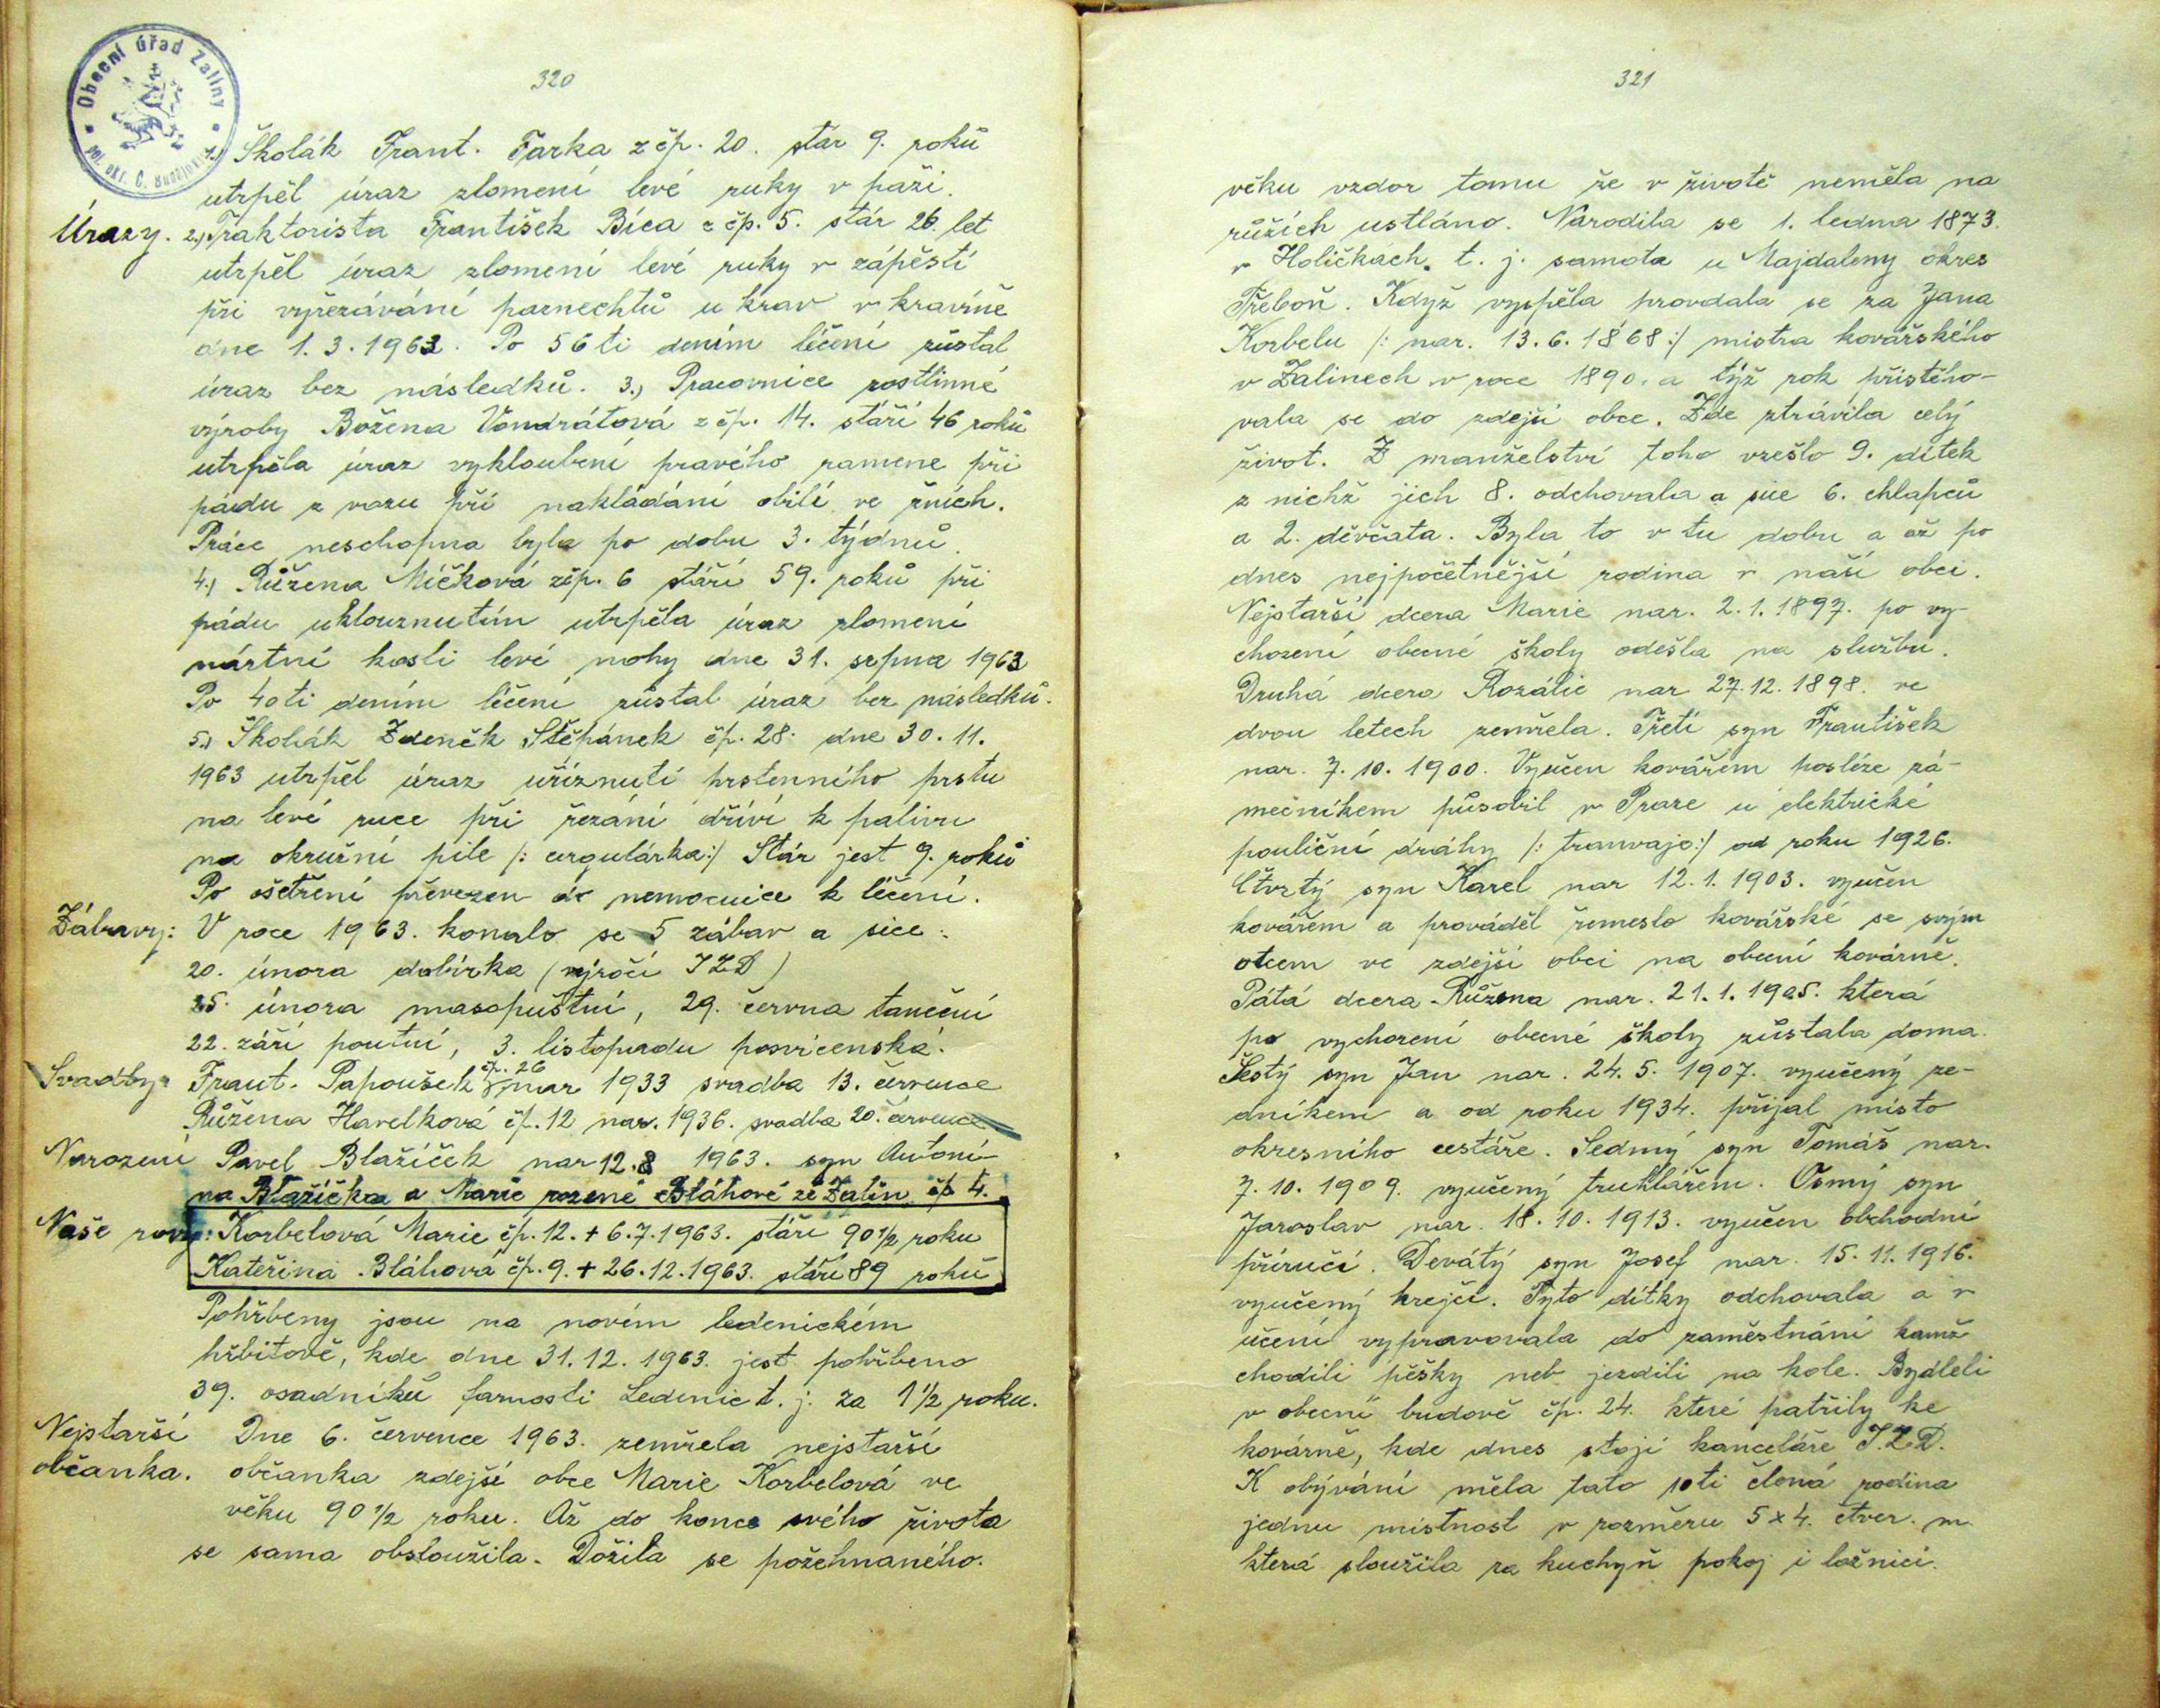 Obecní úřad Zaliny
pol. okr. Č. Budějovice
320
1.) Školák Frant. Farka z čp. 20. stár 9. roků
utrpěl úraz zlomení levé ruky v paži.
Úrazy. 2.) Traktorista František Bíca z čp. 5. stár 26. let
utrpěl úraz zlomení levé ruky v zápěstí
při vyřezávání paznechtů u krav v kravíně
dne 1. 3. 1963. Po 56ti dením léčení zůstal
úraz bez následků. 3.) Pracovnice rostlinné
výroby Božena Vondrátová z čp. 14. stáří 46 roků
utrpěla úraz vykloubení pravého ramene při
pádu z vozu při nakládání obilí ve žních.
Práce neschopna byla po dobu 3. týdnů.
4.) Růžena Míčková z čp. 6 stáří 59. roků při
pádu uklouznutím utrpěla úraz zlomení
nártní kosti levé nohy dne 31. srpna 1963
Po 40ti dením léčení zůstal úraz bez následků.
5.) Školák Zdeněk Štěpánek čp. 28. dne 30. 11.
1963 utrpěl úraz uříznutí prstenního prstu
na levé ruce při řezání dříví k palivu
na okružní pile /: cirgulárka :/ Stár jest 9. roků
Po ošetření převezen do nemocnice k léčení.
Zábavy: V roce 1963. konalo se 5 zábav a sice:
20. února dobírka (výročí JZD)
25. února masopustní, 29. června taneční
22. září poutní, 3. listopadu posvícenská.
čp. 26
Svadby: Frant. Papoušek nar 1933 svadba 13. července
Růžena Havelková čp. 12 nar. 1936. svadba 20. července
Narození Pavel Blažíček nar 12. 8 1963. syn Antoní-
na Blažíčka a Marie rozené Bláhové ze Zalin čp 4.
Naše rovy: Korbelová Marie čp. 12. + 6. 7. 1963. stáří 90 1/2 roku
Kateřina Bláhová čp. 9. + 26. 12. 1963. stáří 89 roků
Pohřbeny jsou na novém ledenickém
hřbitově, kde dne 31. 12. 1963. jest pohřbeno
39. osadníků farnosti Ledenic t. j. za 1 1/2 roku.
Nejstarší Dne 6. července 1963. zemřela nejstarší
občanka. občanka zdejší obce Marie Korbelová ve
věku 90 1/2 roku. Až do konce svého života
se sama obsloužila. Dožila se požehnaného.
321
věku vzdor tomu že v životě neměla na
růžích ustláno. Narodila se 1. ledna 1873.
v Holičkách, t. j. samota u Majdaleny okres
Třeboň. Když vyspěla provdala se za Jana
Korbelu /: nar. 13. 6. 1868 :/ mistra kovářského
v Zalinech v roce 1890. a týž rok přistěho-
vala se do zdejší obce. Zde ztrávila celý
život. Z manželství toho vzešlo 9. dítek
z nichž jich 8. odchovala a sice 6. chlapců
a 2. děvčata. Byla to v tu dobu a až po
dnes nejpočetnější rodina v naší obci.
Nejstarší dcera Marie nar. 2. 1. 1897. po vy-
chození obecné školy odešla na službu.
Druhá dcera Rozálie nar 27. 12. 1898. ve
dvou letech zemřela. Třetí syn František
nar. 7. 10. 1900. Vyučen kovářem posléze zá-
mečníkem působil v Praze u elektrické
pouliční dráhy /: tramvaje :/ od roku 1926.
Čtvrtý syn Karel nar 12. 1. 1903. vyučen
kovářem a prováděl řemeslo kovářské se svým
otcem ve zdejší obci na obecní kovárně.
Pátá dcera Růžena nar. 21. 1. 1905. která
po vychození obecné školy zůstala doma.
Šestý syn Jan nar. 24. 5. 1907. vyučený ze-
dníkem a od roku 1934. přijal místo
okresního cestáře. Sedmý syn Tomáš nar.
7. 10. 1909. vyučený truhlářem. Osmý syn
Jaroslav nar. 18. 10. 1913. vyučen obchodní
příručí. Devátý syn Josef nar. 15. 11. 1916.
vyučený krejčí. Tyto dítky odchovala a v
učení vypravovala do zaměstnání kamž
chodili pěšky neb jezdili na kole. Bydleli
v obecní budově čp. 24. které patřily ke
kovárně, kde dnes stojí kanceláře J.Z.D.
K obývání měla tato 10ti člená rodina
jednu místnost v rozměru 5 x 4. čtver. m.
která sloužila za kuchyň pokoj i ložnici.